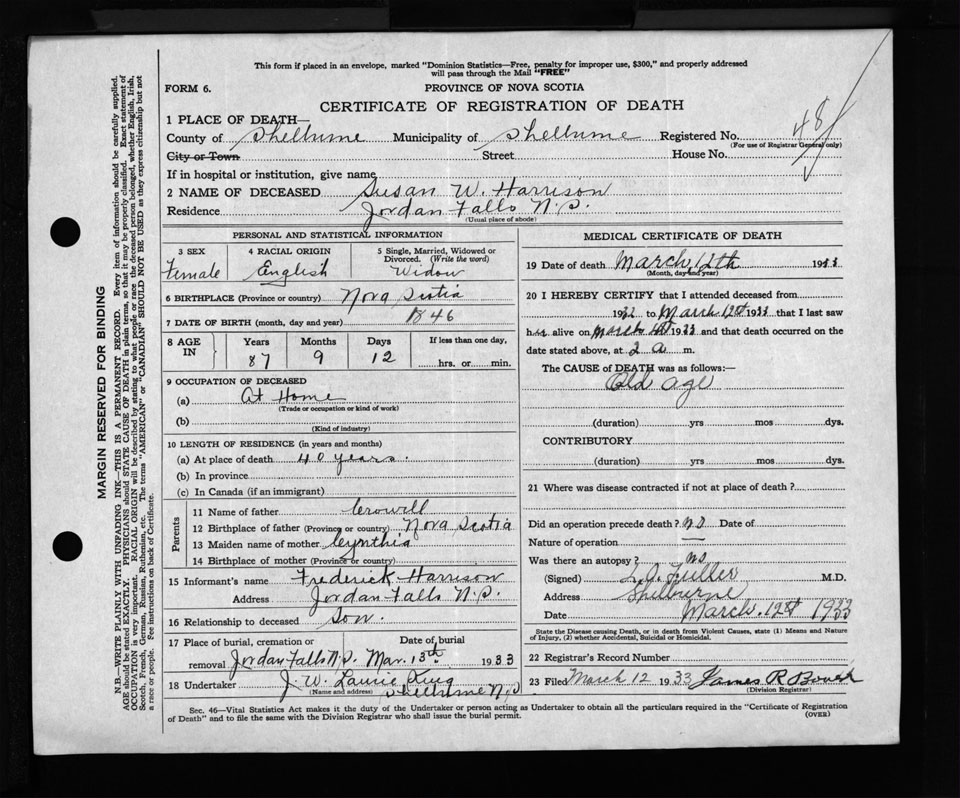 This form if placed in an envelope, marked "Dominion Statistics—Free, penalty for improper use, $300," and properly addressed
will pass through the Mail "FREE"
FORM 6.
PROVINCE OF NOVA SCOTIA
CERTIFICATE OF REGISTRATION OF DEATH
1 PLACE OF DEATH—
County of Shelburne Municipality of Shelburne Registered No. 48
(For use of Registrar General only)
City or Town Street House No.
If in hospital or institution, give name
2 NAME OF DECEASED Susan W. Harrison
Residence Jordan Falls N.S.
(Usual place of abode)
PERSONAL AND STATISTICAL INFORMATION
3 SEX 4 RACIAL ORIGIN 5 Single, Married, Widowed or
Divorced. (Write the word)
Female English Widow
6 BIRTHPLACE (Province or country) Nova Scotia
7 DATE OF BIRTH (month, day and year) 1846
8 AGE IN Years Months Days If less than one day,
87 9 12 hrs. or min.
9 OCCUPATION OF DECEASED
(a) At Home
(Trade or occupation or kind of work)
(b)
(Kind of industry)
10 LENGTH OF RESIDENCE (in years and months)
(a) At place of death 40 years.
(b) In province
(c) In Canada (if an immigrant)
Parents
11 Name of father Crowell
12 Birthplace of father (Province or country) Nova Scotia
13 Maiden name of mother Cynthia
14 Birthplace of mother (Province or country)
15 Informant's name Frederick Harrison
Address Jordan Falls N.S.
16 Relationship to deceased Son.
17 Place of burial, cremation or Date of burial
removal Jordan Falls N.S. Mar. 13th 1933
18 Undertaker J. W. Laurie King
(Name and address) Shelburne N.S
MEDICAL CERTIFICATE OF DEATH
19 Date of death March 12th 1933
(Month, day and year)
20 I HEREBY CERTIFY that I attended deceased from
1932 to March 12th 1933 that I last saw
her alive on March 1933 and that death occurred on the
date stated above, at 2 a m.
The CAUSE of DEATH was as follows:—
Old age
(duration) yrs mos dys.
CONTRIBUTORY
(duration) yrs mos dys.
21 Where was disease contracted if not at place of death?
Did an operation precede death? no Date of
Nature of operation —
Was there an autopsy? no
(Signed) Fuller M.D.
Address Shelburne
Date March. 12th 1933
State the Disease causing Death, or in death from Violent Causes, state (1) Means and Nature
of Injury, (2) whether Accidental, Suicidal or Homicidal.
22 Registrar's Record Number
23 Filed March 12 1933 James R Bower
(Division Registrar)
Sec. 46—Vital Statistics Act makes it the duty of the Undertaker or person acting as Undertaker to obtain all the particulars required in the "Certificate of Registration
of Death" and to file the same with the Division Registrar who shall issue the burial permit.
(OVER)
MARGIN RESERVED FOR BINDING
N.B.—WRITE PLAINLY WITH UNFADING INK—THIS IS A PERMANENT RECORD. Every item of information should be carefully supplied.
AGE should be stated EXACTLY. PHYSICIANS should STATE CAUSE OF DEATH in plain terms, so that it may be properly classified. Exact statement of
OCCUPATION is very important. RACIAL ORIGIN will be described by stating to what people or race the deceased person belonged, whether English, Irish,
Scotch, French, German, Russian, Ruthenian, etc. The terms "AMERICAN" or "CANADIAN" SHOULD NOT BE USED as they express citizenship but not
a race or people. See instructions on back of Certificate.